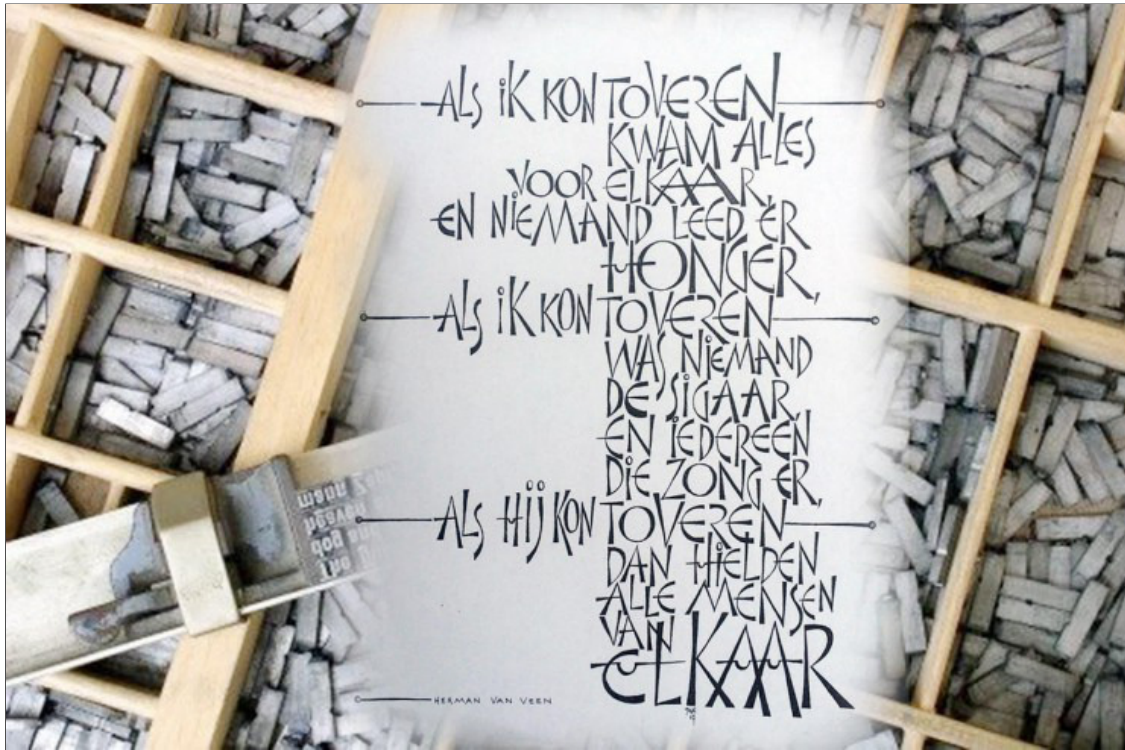 ALS IK KON TOVEREN
KWAM ALLES
VOOR ELKAAR,
EN NIEMAND LEED ER
HONGER,
ALS IK KON TOVEREN
WAS NIEMAND
DE SIGAAR,
EN IEDEREEN
DIE ZONG ER,
ALS HIJ KON TOVEREN
DAN HIELDEN
ALLE MENSEN
VAN
ELKAAR
HERMAN VAN VEEN